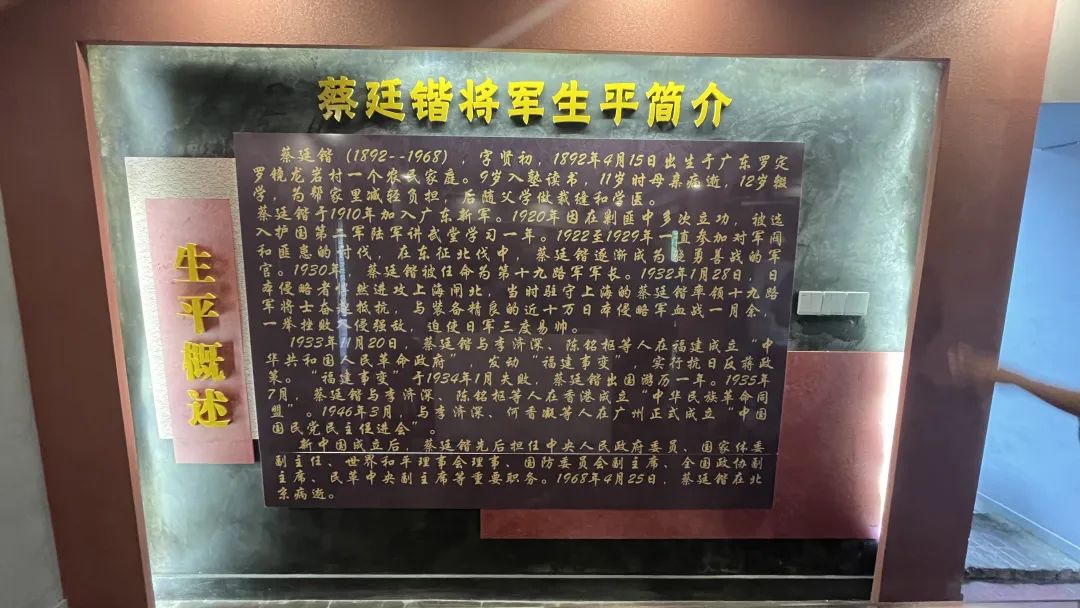 蔡廷锴将军生平简介
生平概述
蔡廷锴（1892--1968），字贤初，1892年4月15日出生于广东罗定
罗镜龙岩村一个农民家庭。9岁入塾读书，11岁时母亲病逝，12岁辍
学，为帮家里减轻负担，后随父学做裁缝和学医。
蔡廷锴于1910年加入广东新军。1920年因在剿匪中多次立功，被选
入护国第二军陆军讲武堂学习一年。1922至1929年一直参加对军阀
和匪患的讨伐，在东征北伐中，蔡廷锴逐渐成为骁勇善战的军
官。1930年，蔡廷锴被任命为第十九路军军长。1932年1月28日，日
本侵略者悍然进攻上海闸北，当时驻守上海的蔡廷锴率领十九路
军将士奋起抵抗，与装备精良的近十万日本侵略军血战一月余，
一举挫败入侵强敌，迫使日军三度易帅。
1933年11月20日，蔡廷锴与李济深、陈铭枢等人在福建成立“中
华共和国人民革命政府”，发动“福建事变”，实行抗日反蒋政
策。“福建事变”于1934年1月失败，蔡廷锴出国游历一年。1935年
7月，蔡廷锴与李济深、陈铭枢等人在香港成立“中华民族革命同
盟”。1946年3月，与李济深、何香凝等人在广州正式成立“中国
国民党民主促进会”。
新中国成立后，蔡廷锴先后担任中央人民政府委员、国家体委
副主任、世界和平理事会理事、国防委员会副主席、全国政协副
主席、民革中央副主席等重要职务。1968年4月25日，蔡廷锴在北
京病逝。